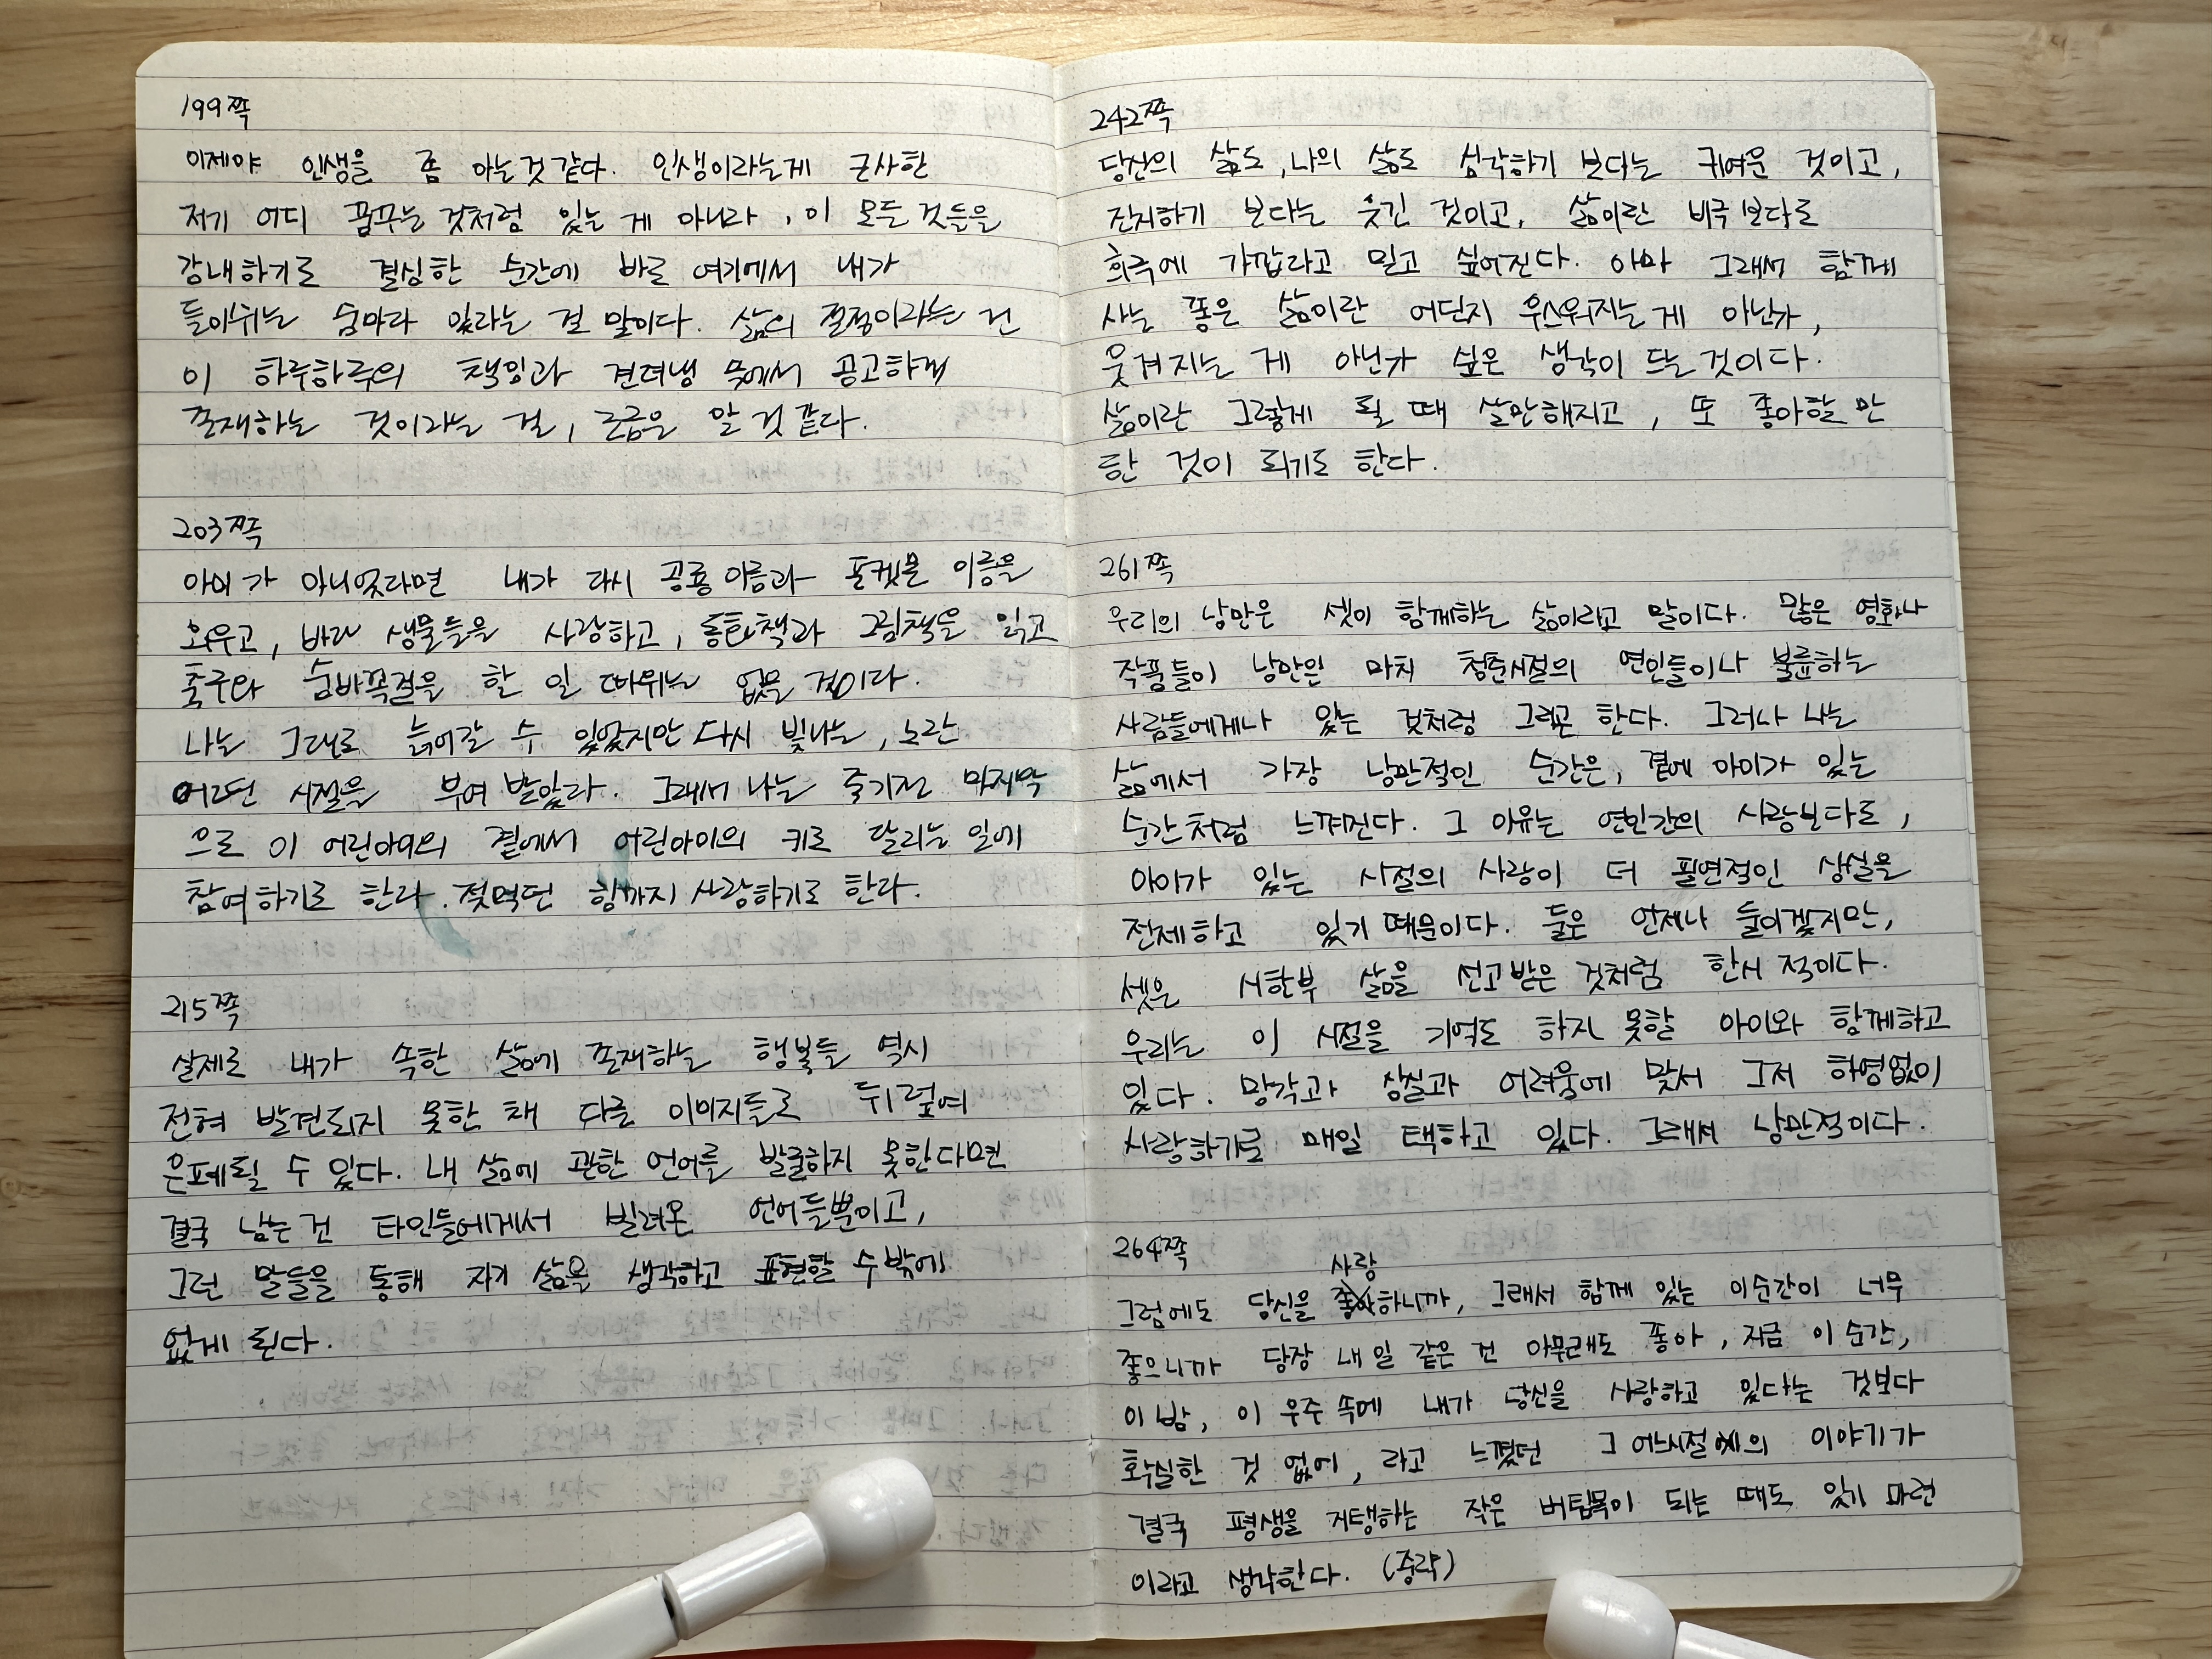 199쪽
이제야 인생을 좀 아는것 같다. 인생이라는게 근사한
저기 어디 꿈꾸는 것처럼 있는 게 아니라, 이 모든 것들을
감내하기로 결심한 순간에 바로 여기에서 내가
들이쉬는 숨마다 있다는 걸 말이다. 삶의 절정이라는 건
이 하루하루의 책임과 견뎌냄 속에서 공고하게
존재하는 것이라는 걸, 조금은 알 것 같다.
203쪽
아이가 아니었다면 내가 다시 공룡이름과 포켓몬 이름을
외우고, 바다 생물들을 사랑하고, 동화책과 그림책을 읽고
축구와 숨바꼭질을 할 일 따위는 없을 것이다.
나는 그대로 늙어갈 수 있었지만 다시 빛나는, 노란
어떤 시절을 부여 받았다. 그래서 나는 죽기전 마지막
으로 이 어린아이의 곁에서 어린아이의 키로 달리는 일에
참여하기로 한다. 젖먹던 힘까지 사랑하기로 한다.
215쪽
실제로 내가 속한 삶에 존재하는 행복들 역시
전혀 발견되지 못한 채 다른 이미지들로 뒤덮여
은폐될 수 있다. 내 삶에 관한 언어를 발굴하지 못한다면
결국 남는건 타인들에게서 빌려온 언어들뿐이고,
그런 말들을 통해 자기 삶을 생각하고 표현할 수밖에
없게 된다.
242쪽
당신의 삶도, 나의 삶도 심각하기 보다는 귀여운 것이고,
진지하기 보다는 웃긴 것이고, 삶이란 비극보다도
희극에 가깝다고 믿고 싶어진다. 아마 그래서 함께
사는 좋은 삶이란 어딘지 우스워지는 게 아닌가,
웃겨지는 게 아닌가 싶은 생각이 드는 것이다.
삶이란 그렇게 될 때 살만해지고, 또 좋아할 만
한 것이 되기도 한다.
261쪽
우리의 낭만은 셋이 함께하는 삶이라고 말이다. 많은 영화나
작품들이 낭만은 마치 청춘시절의 연인들이나 불륜하는
사람들에게나 있는 것처럼 그리곤 한다. 그러나 나는
삶에서 가장 낭만적인 순간은, 곁에 아이가 있는
순간처럼 느껴진다. 그 이유는 연인간의 사랑보다도,
아이가 있는 시절의 사랑이 더 필연적인 상실을
전제하고 있기 때문이다. 둘은 언제나 둘이겠지만,
셋은 시한부 삶을 선고받은 것처럼 한시적이다.
우리는 이 시절을 기억도 하지 못할 아이와 함께하고
있다. 망각과 상실과 어려움에 맞서 그저 하염없이
사랑하기로 매일 택하고 있다. 그래서 낭만적이다.
264쪽
사랑
그럼에도 당신을 좋아하니까, 그래서 함께 있는 이순간이 너무
좋으니까 당장 내일 같은 건 아무래도 좋아, 지금 이 순간,
이 밤, 이 우주 속에 내가 당신을 사랑하고 있다는 것보다
확실한 것 없어, 라고 느꼈던 그 어느시절의 이야기가
결국 평생을 지탱하는 작은 버팀목이 되는 때도 있기 마련
이라고 생각한다. (중략)